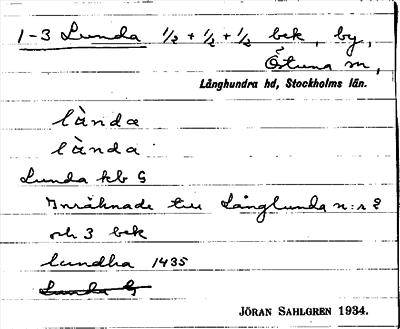 1-3 Lunda 1/2 + 1/2 + 1/2 bek, by,
Östuna sn,
Långhundra hd, Stockholms län.
lànda
lànda
Lunda kb G
Inräknade till Långlunda n:r 2
och 3 bek
lundha 1435
Lunda G
JÖRAN SAHLGREN 1934.